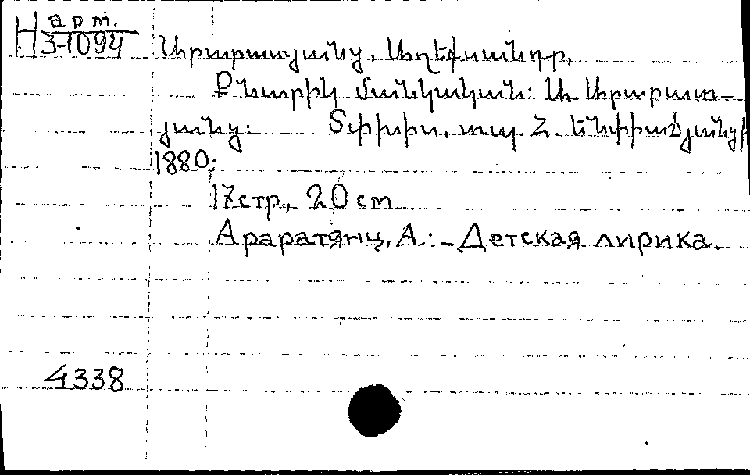 Н арт. 3-1094
Արարատյանց, Ալեքսանդր.
Քնարիկ մանկական: Ա. Արարատ-
յանց: Տփխիս, տպ. Հ. Էնֆիաճյանցի
1880;
17стр., 20 cm
Араратянц, А.: - Детская лирика.
4338